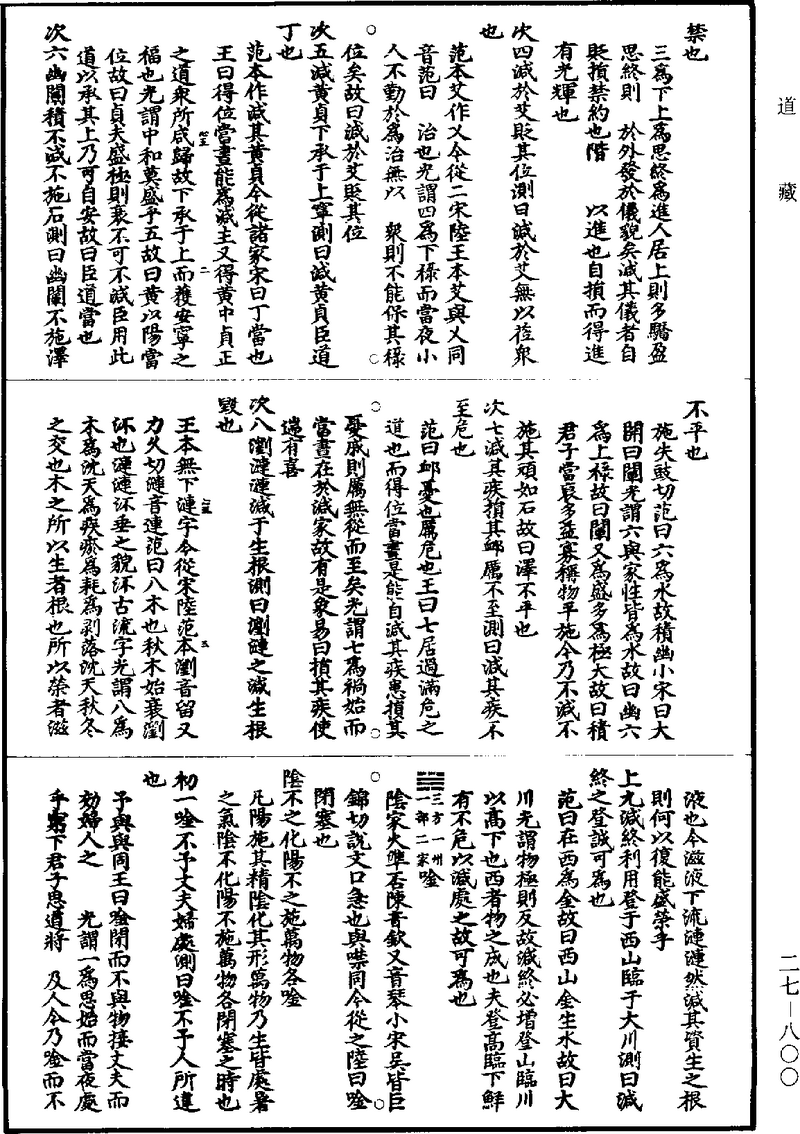 道藏
禁也
三爲下上爲思終爲進人居上則多驕盈
思終則　於外發於儀貌矣減其儀者自
貶損禁約也階　以進也自損而得進
有光輝也
次四減於艾貶其位測曰減於艾無以莅衆
也
范本艾作乂今從二宋陸王本艾與乂同
音范曰　治也光謂四爲下祿而當夜小
人不勤於爲治無以　衆則不能保其祿
位矣故曰減於艾貶其位
次五減黃貞下承于上寧測曰減黃貞臣道
丁也
范本作減其黃貞今從諸家宋曰丁當也
王曰得位當晝能爲減主又得黃中貞正
之道衆所咸歸故下承于上而獲安寧之
福也光謂中和莫盛乎五故曰黃以陽當
位故曰貞夫盛極則衰不可不減臣用此
道以承其上乃可自安故曰臣道當也
次六幽闡積不減不施石測曰幽闡不施澤
不平也
施失豉切范曰六爲水故積幽小宋曰大
開曰闡光謂六與家性皆爲水故曰幽六
爲上祿故曰闡又爲盛多爲極大故曰積
君子當裒多益寡稱物平施今乃不減不
施其頑如石故曰澤不平也
次七減其疾損其卹厲不至測曰減其疾不
至危也
范曰卹憂也厲危也王曰七居過滿危之
道也而得位當晝是能自減其疾患損其
憂戚則厲無從而至矣光謂七爲禍始而
當晝在於減家故有是象易曰損其疾使
遄有喜
次八瀏漣漣減于生根測曰瀏漣之減生根
毀也
王本無下漣字今從宋陸范本瀏音留又
力久切漣音連范曰八木也秋木始衰瀏
㳅也漣漣㳅垂之貌㳅古流字光謂八爲
木爲沈天爲疾瘀爲耗爲剥落沈天秋冬
之交也木之所以生者根也所以榮者滋
液也今滋液下流漣漣然減其資生之根
則何以復能盛榮乎
上九減終利用登于西山臨于大川測曰減
終之登誠可爲也
范曰在西爲金故曰西山金生水故曰大
川光謂物極則反故減終必增登山臨川
以高下也西者物之成也夫登高臨下鮮
有不危以減處之故可爲也
三方一州一部二家唫
陰家火準否陳音欽又音琴小宋吳皆巨
錦切說文口急也與噤同今從之陸曰唫
閉塞也
陰不之化陽不之施萬物各唫
凡陽施其精陰化其形萬物乃生皆處暑
之氣陰不化陽不施萬物各閉塞之時也
初一唫不予丈夫婦處測曰唫不予人所違
也
予與與同王曰唫閉而不與物接丈夫而
効婦人之　光謂一爲思始而當夜處
乎窮下君子思道將　及人今乃唫而不
二七—八〇〇